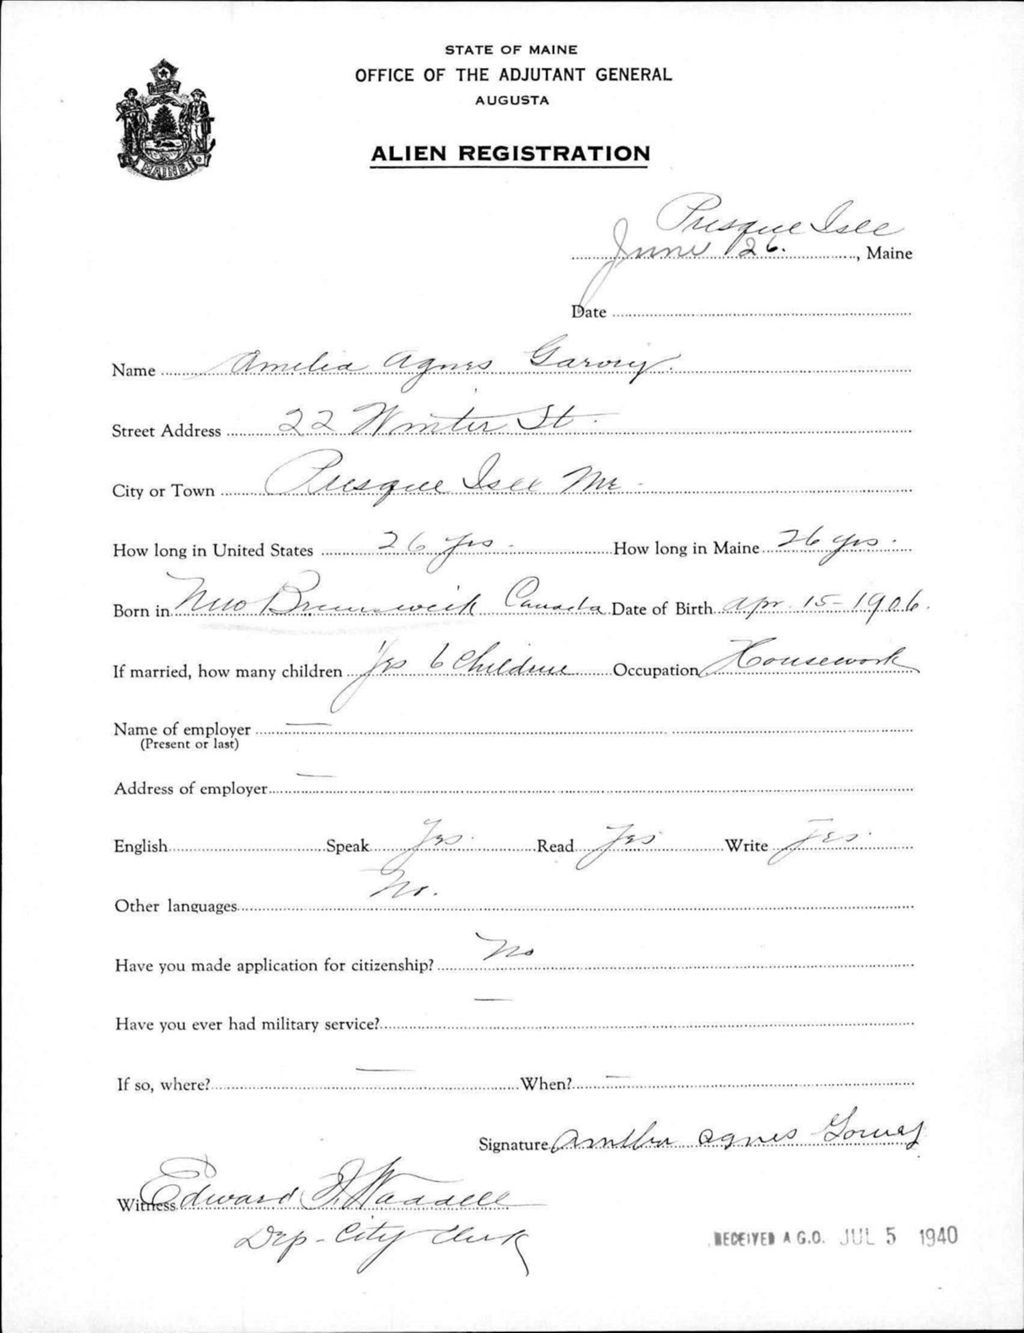 STATE OF MAINE
OFFICE OF THE ADJUTANT GENERAL
AUGUSTA
ALIEN REGISTRATION
MAINE
Presque Isle
June 26. , Maine
Date
Name Amelia Agnes
Street Address 22 Winter St.
City or Town Presque Isle Me.
How long in United States 26 yrs. How long in Maine 26 yrs.
Born in New Brunswick Canada Date of Birth Apr. 15-1906.
If married, how many children Yes 6 Children Occupation Housework
Name of employer —
(Present or last)
Address of employer —
English Speak Yes. Read Yes Write Yes.
Other languages No.
Have you made application for citizenship? No
Have you ever had military service? —
If so, where? — When? —
Signature Amelia Agnes
Witness Edward J. Waddell
Dep - City Clerk
RECEIVED A.G.O. JUL 5 1940